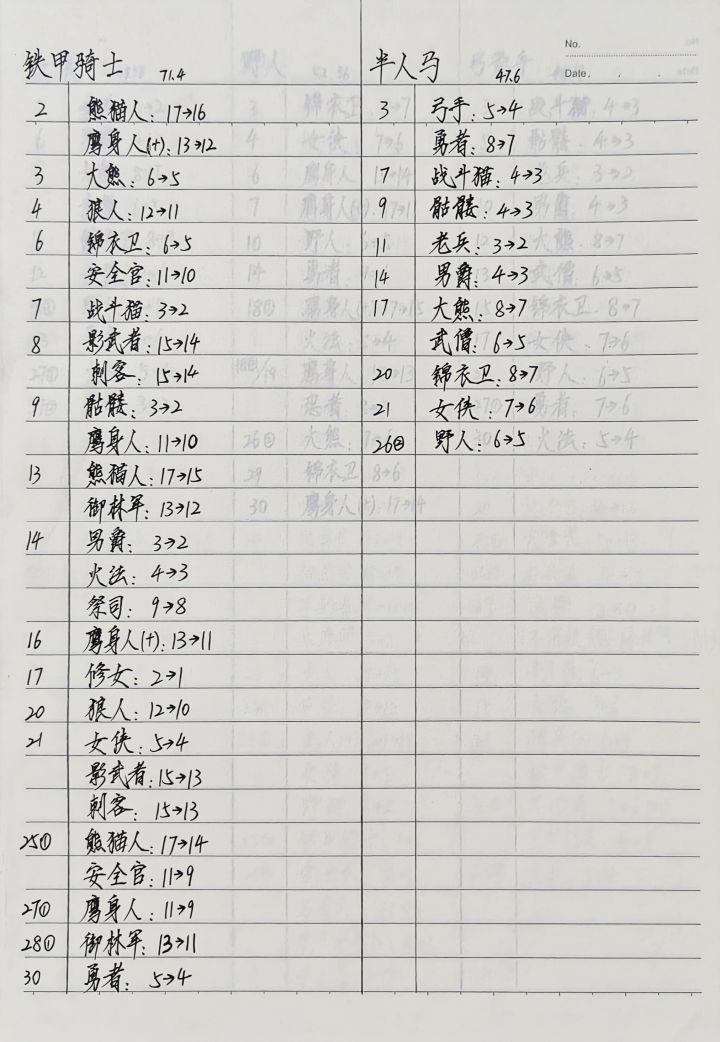 No.
铁甲骑士 71.4
半人马 47.6
Date. . .
2 熊猫人: 17→16
鹰身人(+): 13→12
3 大熊: 6→5
4 狼人: 12→11
6 锦衣卫: 6→5
安全官: 11→10
7 战斗猫: 3→2
8 影武者: 15→14
刺客: 15→14
9 骷髅: 3→2
鹰身人: 11→10
13 熊猫人: 17→15
御林军: 13→12
14 男爵: 3→2
火法: 4→3
祭司: 9→8
16 鹰身人(+): 13→11
17 修女: 2→1
20 狼人: 12→10
21 女侠: 5→4
影武者: 15→13
刺客: 15→13
25① 熊猫人: 17→14
安全官: 11→9
27① 鹰身人: 11→9
28① 御林军: 13→11
30 勇者: 5→4
3 弓手: 5→4
勇者: 8→7
17 战斗猫: 4→3
9 骷髅: 4→3
11 老兵: 3→2
14 男爵: 4→3
17 大熊: 8→7
武僧: 6→5
20 锦衣卫: 8→7
21 女侠: 7→6
26② 野人: 6→5